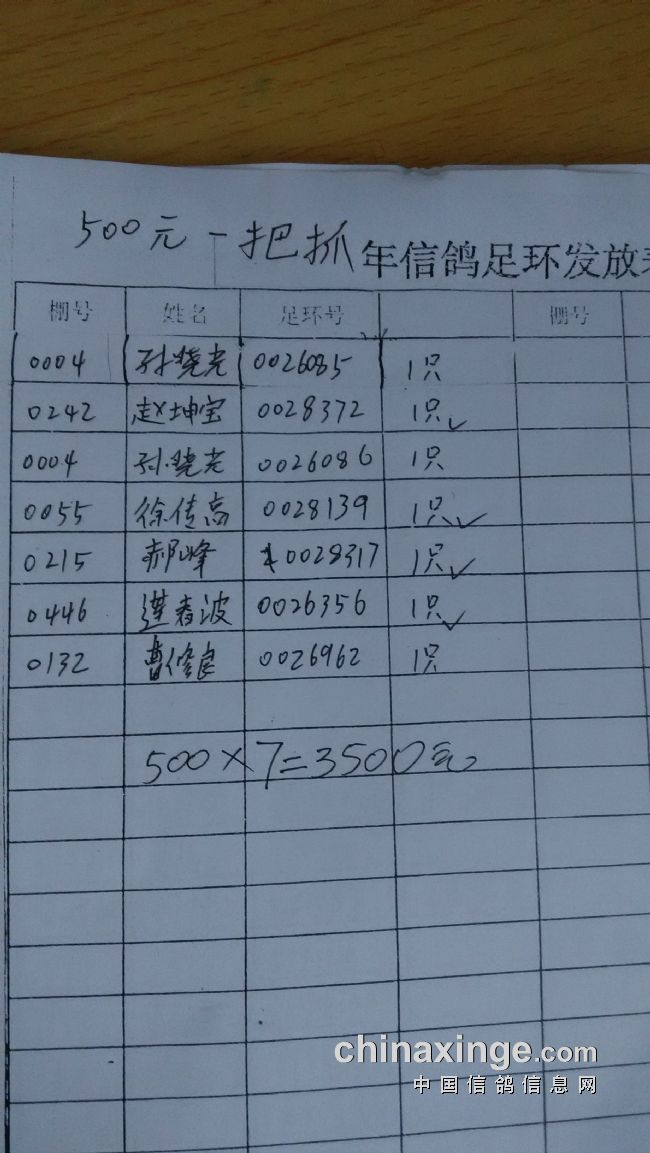 500元一把抓 年信鸽足环发放
棚号 姓名 足环号 棚号
0004 孙晓光 0026085 1只
0242 赵坤宝 0028372 1只
0004 孙晓光 0026086 1只
0055 徐传高 0028139 1只
0215 郝峰 0028317 1只
0446 莲春波 0026356 1只
0132 曹修良 0026962 1只
500×7=3500元
chinaxinge.com
中国信鸽信息网